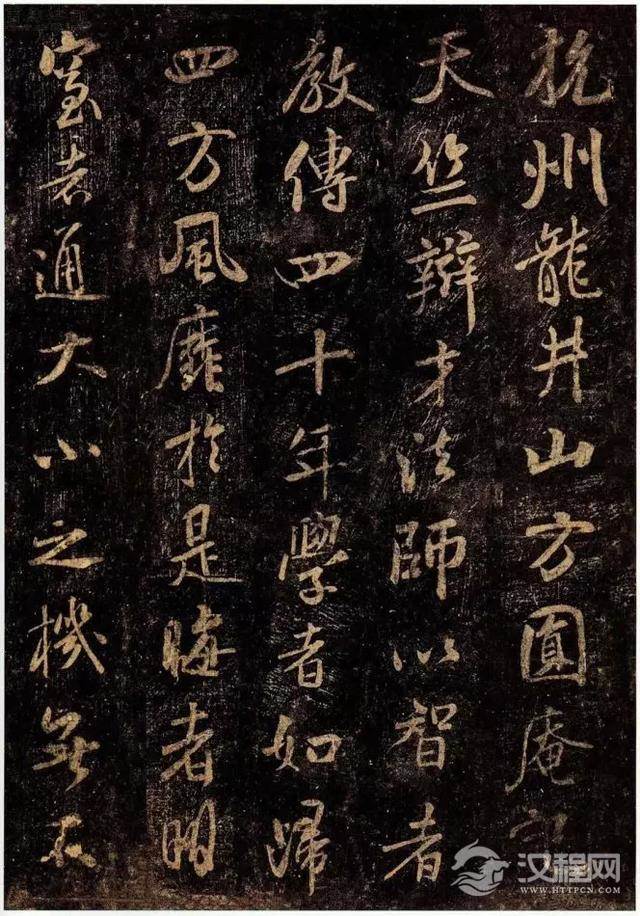 杭州龍井山方圓庵記
天竺辯才法師以智者
教傳四十年學者如歸
四方風靡於是晦者明
窒者通大小之機無不
汉程网
WWW.HTTPCN.COM